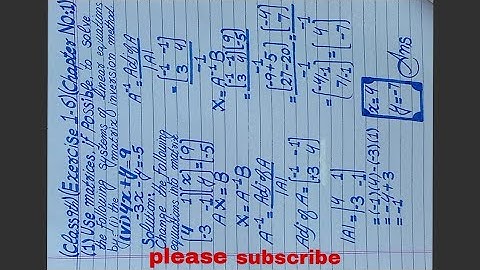 (Class 9th)(Exercise 1-6)(Chapter No:1)
(1) Use matrices, if possible to solve
the following systems of linear equations
by: (i) the matrix inversion method
(iv) 4x+y=9
-3x-y=-5
Solution:-
Change the following
equations into matrix
[4 1] [x] = [9]
[-3 -1] [y] [-5]
AX=B
X=A⁻¹B
A⁻¹ = Adj of A
|A|
Adj of A = [-1 -1]
[3 4]
|A| = |4 1|
|-3 -1|
=(-1)(4)-(-3)(1)
=-4+3
=-1
A⁻¹ = Adj of A
|A|
= [-1 -1]
[3 4]
-1
X=A⁻¹B
= [-1 -1] [9]
[3 4] [-5]
-1
= [-9+5] = [-4]
[27-20] [7]
-1 -1
= [-4/-1] = [4]
[7/-1] [-7]
x=4
y=-7
Ans
please subscribe